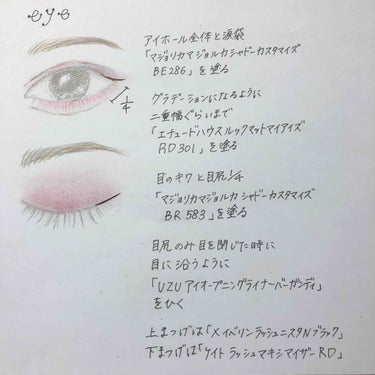 eye
アイホール全体と涙袋
「マジョリカマジョルカ シャドーカスタマイズ
BE286」を塗る
グラデーションになるように
二重幅ぐらいまで
「エチュードハウス ルックマットマイアイズ
RD301」を塗る
1/4
目のキワと目尻1/4
「マジョリカマジョルカ シャドーカスタマイズ
BR583」を塗る
目尻のみ目を閉じた時に
目に沿うように
「UZU アイオープニングライナーバーガンディ」
をひく
上まつげは「メイベリンラッシュニスタNブラック」
下まつげは「ケイト ラッシュマキシマイザーRD」